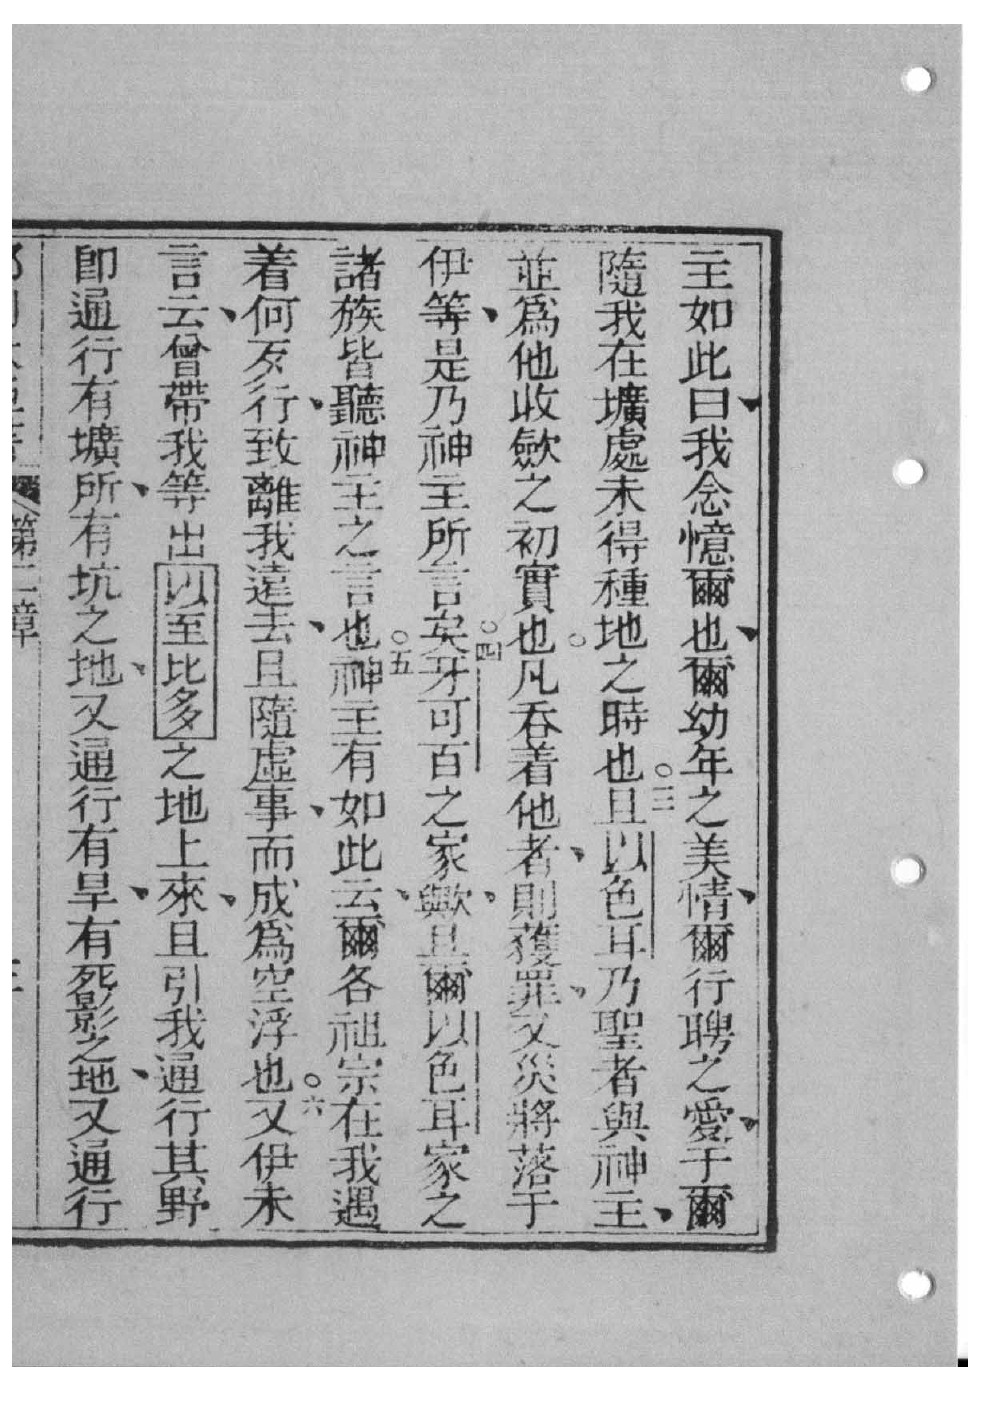 主如此曰我念憶爾也爾幼年之美情爾行聘之愛于爾
隨我在壙處未得種地之時也○三且以色耳乃聖者與神主
並爲他收歛之初實也○凡吞着他者則獲罪又災將落于
伊等是乃神主所言矣○四牙可百之家歟且爾以色耳家之
諸族皆聽神主之言也○五神主有如此云爾各祖宗在我遇
着何歹行致離我遠去且隨虛事而成爲空浮也○六又伊未
言云曾帶我等出以至比多之地上來且引我通行其野
卽通行有壙所有坑之地又通行有旱有死影之地又通行
第二章